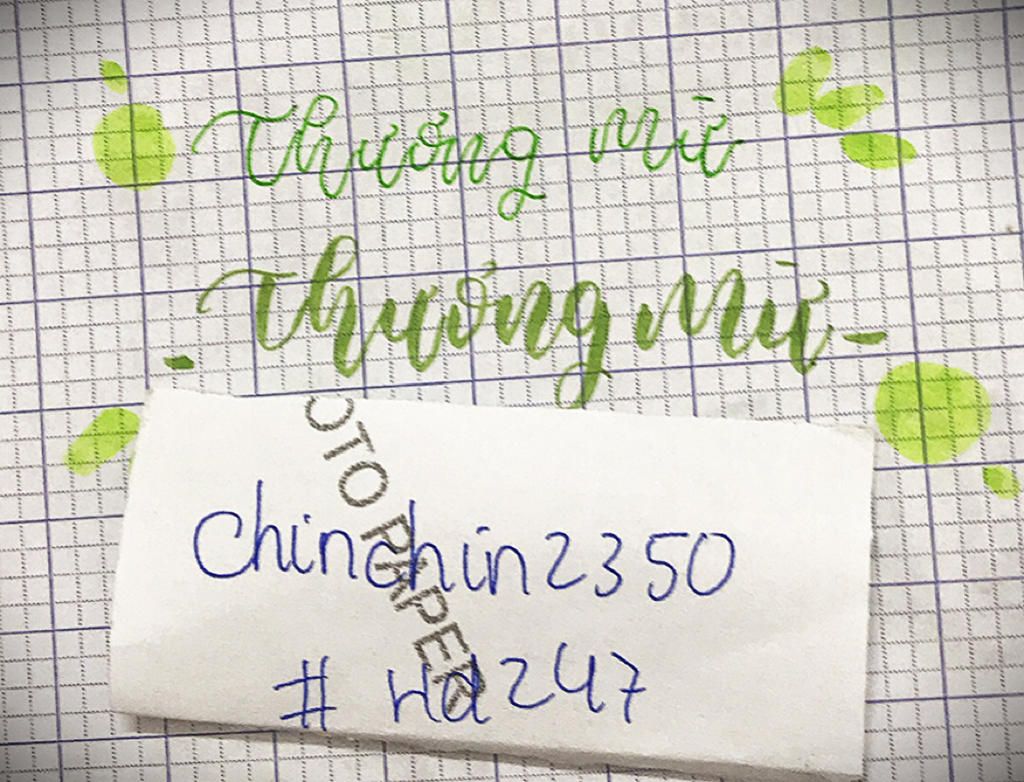 Thương mừ
Thương mừ
OTO PAPER
chinchin2350
# hd247